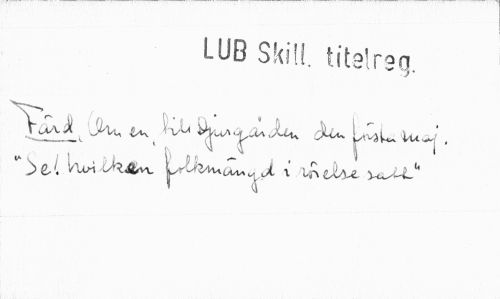 LUB Skill. titelreg.
Färd, Om en, till Djurgården den första maj.
"Se! hvilken folkmängd i rörelse satt"